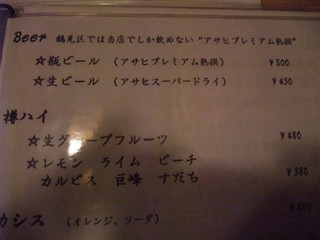 Beer 鶴見区では当店でしか飲めない"アサヒプレミアム熟撰"
☆瓶ビール (アサヒプレミアム熟撰) ¥500
☆生ビール (アサヒスーパードライ) ¥450
樽ハイ
☆生グレープフルーツ ¥480
☆レモン ライム ピーチ
カルピス 巨峰 すだち ¥380
カシス (オレンジ、ソーダ)